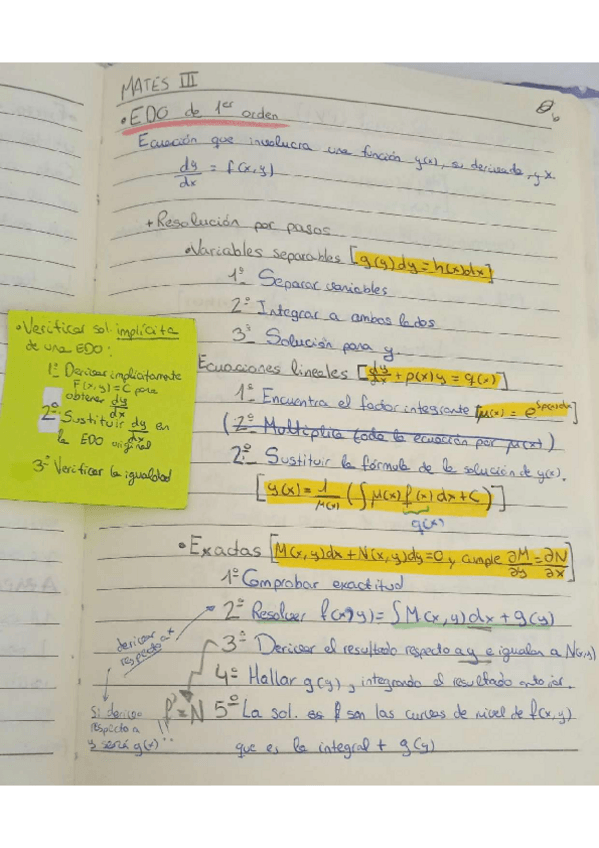 MATES III
• EDO de 1er orden
Ecuación que involucra una función y(x), su derivada, y x.
dy/dx = f(x,y)
+ Resolución por pasos
• Variables separables [g(y)dy = h(x)dx]
1º Separar variables
2º Integrar a ambos lados
3º Solución para y
Ecuaciones lineales [dy/dx + p(x)y = q(x)]
1º Encuentra el factor integrante [μ(x) = e^∫p(x)dx]
(2º Multiplica toda la ecuación por μ(x))
2º Sustituir la fórmula de la solución de y(x).
[y(x) = 1/μ(x) (∫ μ(x) f(x) dx + C)]
q(x)
• Exactas [M(x,y)dx + N(x,y)dy = 0, y cumple ∂M/∂y = ∂N/∂x]
1º Comprobar exactitud
2º Resolver f(x,y) = ∫M(x,y)dx + g(y)
3º Derivar el resultado respecto a y e igualar a N(x,y)
4º Hallar g(y), integrando el resultado anterior.
5º La sol. es f son las curvas de nivel de f(x,y)
que es la integral + g(y)
• Verificar sol. implícita
de una EDO:
1º Derivar implícitamente
F(x,y) = C para
obtener dy/dx
2º Sustituir dy/dx en
la EDO original
3º Verificar la igualdad
derivar
respecto
Si derivo
respecto a
y será g(x)
= N
!!